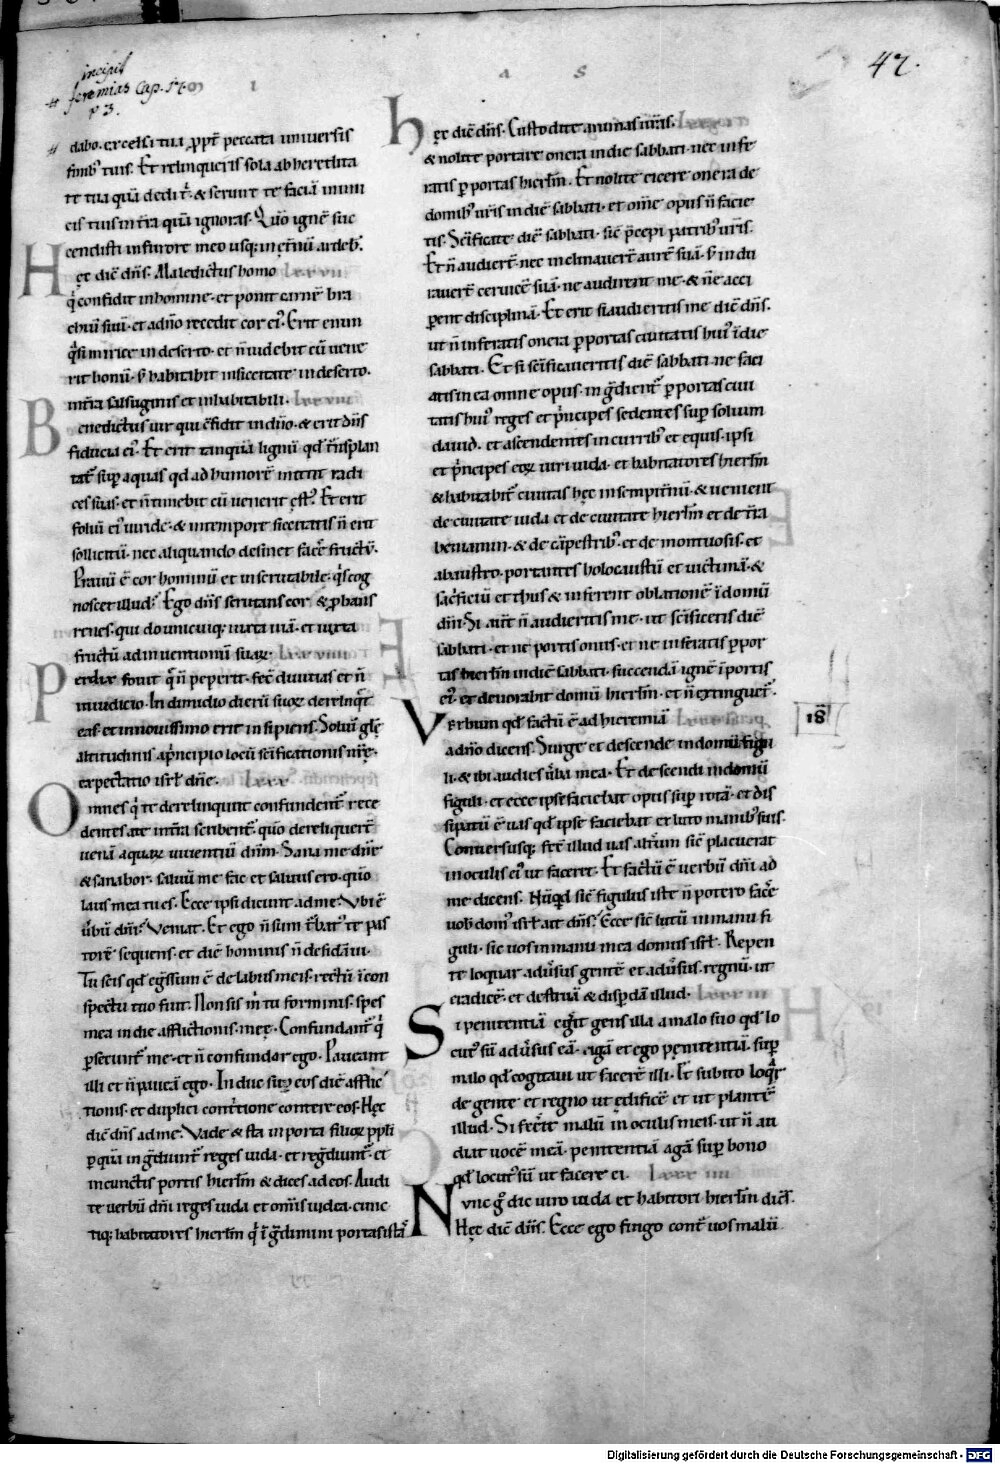 incipit
Jeremias Cap. 17.
v 3.
I A S
42.
dabo. excelsa tua ꝓpt̄ peccata in universis
finibꝰ tuis. Et relinqueris sola ab heredita
te tua quā dedi t'. & servire te faciā inimi
cis tuis in t̄ra quā ignoras. Qūo ignē suc
cendisti in furore meo usq; in et̄nū ardeb'.
Hęc dic̄ dn̄s. Maledictus homo lxxvii
q' confidit in homine. et ponit carnē bra
chiū suū. et a dn̄o recedit cor eiꝰ. Erit enim
q̄si mirice in deserto. et n̄ videbit cū vene
rit bonū. s; habitabit in siccitate in deserto.
in t̄ra salsuginis et inhabitabili. lxxviii
Benedictus vir qui c̄fidit in dn̄o. & erit dn̄s
fiducia eiꝰ. Et erit tanquā lignū qd' t̄nsplan
tat' sup aquas qd ad humorē mittit radi
ces suas. et n̄ timebit cū venerit ęstꝰ. Et erit
foliū eiꝰ viride. & in tempore siccitatis n̄ erit
sollicitū. nec aliquando desinet facē fructū.
Pravū ē cor hominū et inscrutabile. q's cog
noscet illud? Ego dn̄s scrutans cor & ꝓbans
renes. qui do unicuiq; iuxta viā. et iuxta
fructū adinventionū suaꝝ. lxxviiii
Perdix fovit q̄ n̄ peperit. fec̄ divitias et n̄
in iudicio. In dimidio dierū suoꝝ derelinq̄t
eas. et in novissimo erit insipiens. Soliū glę
altitudinis a p'ncipio locū sc̄ificationis nr̄ę.
expectatio isrl dn̄e. lxxx
Omnes q' te derelinquunt confundent'. rece
dentes a te in t̄ra scribent'. qūo dereliquer̄t
venā aquaꝝ viventiū dn̄m. Sana me dn̄e
& sanabor. salvū me fac et salvus ero. qūo
laus mea tu es. Ecce ipsi dicunt ad me. Ubi ē
v̄bū dn̄i? Veniat. Et ego n̄ sum t̄batꝰ te pas
torē sequens. et diē hominis n̄ desid̄avi.
Tu scis qd' eg̃ssum ē de labiis meis. rectū ī con
spectu tuo fuit. Non sis m̄ tu forminis. spes
mea in die afflictionis. meę. Confundant' q'
ꝑsecunt' me. et n̄ confundar ego. Paveant
illi et n̄ paveā ego. Induc sup eos diē afflic
tionis. et duplici cont̄tione contere eos. Hęc
dic̄ dn̄s ad me. Vade & sta in porta filioꝝ ppli
ꝑ quā ing̃diunt' reges iuda. et eg̃diunt'. et
in cunctis portis hierlm̄ & dices ad eos. Audi
te verbū dn̄i reges iuda et om̄is iudea. cunc
tiq; habitatores hierlm̄ q' ing̃dimini portas istas.
Hęc dic̄ dn̄s. Custodite animas vr̄as.
& nolite portare onera in die sabbati. nec infe
ratis ꝑ portas hierlm̄. Et nolite eicere onera de
domibꝰ vr̄is in diē sabbati. et om̄e opus n̄ facie
tis. Sc̄ificate diē sabbati. sic̄ p̄cepi patribꝰ vr̄is.
Et n̄ audier̄t. nec inclinaver̄t aurē suā. s; indu
raver̄t cervicē suā. ne audirent me. & ne acci
perent disciplinā. Et erit si audieritis me dic̄ dn̄s.
ut n̄ inferatis onera ꝑ portas civitatis huiꝰ ī die
sabbati. Et si sc̄ificaveritis diē sabbati. ne faci
atis in ea omne opus. ing̃dient' ꝑ portas civi
tatis huiꝰ reges et p'ncipes sedentes sup solium
david. et ascendentes in curribꝰ et equis. ipsi
et p'ncipes eoꝝ. viri iuda. et habitatores hierlm̄
& habitabit' civitas hęc in sempit̄nū. & venient
de civitate iuda et de civitate hierlm̄ et de t̄ra
beniamin. & de cāpestribꝰ. et de montuosis. et
ab austro. portantes holocaustū et victimā. &
sac'ficiū et thus. & inferent oblationē ī domū
dn̄i. Si aut̄ n̄ audieritis me. ut sc̄ificetis diē
sabbati. et ne portis onus. et ne inferatis ꝑ por
tas hierlm̄ in diē sabbati. succendā ignē ī portis
eiꝰ. et devorabit domū hierlm̄. et n̄ extinguet'.
Verbum qd' factū ē ad hieremiā
a dn̄o dicens. Surge et descende in domū figu
li. & ibi audies v̄ba mea. Et descendi in domū
figuli. et ecce ipse faciebat opus sup rotā. et dis
sipatū ē vas qd' ipse faciebat et luto manibꝰ suis.
Conversusq; fec̄ illud vas alt̄um sic̄ placuerat
in oculis eiꝰ ut faceret. Et factū ē verbū dn̄i ad
me dicens. Nūqd' sic̄ figulus iste n̄ potero facē
vob' domꝰ isrl ait dn̄s? Ecce sic̄ lutū in manu fi
guli. sic vos in manu mea domus isrl. Repen
te loquar adv̄sus gentē et adv̄sus. regnū. ut
eradicē. et destruā & disꝑdā illud. lxxxiii
Si penitentiā egit gens illa a malo suo qd' lo
cutꝰ sū adv̄sus eā. agā et ego pęnitentiā. sup
malo qd' cogitavi ut facerē illi. Et subito loq̄r
de gente et regno ut ędificē et ut plantē
illud. Si fec̄it malū in oculis meis. ut n̄ au
diat vocē meā. penitentiā agā sup bono
qd' locutꝰ sū ut facere ei. lxxxiiii
Nunc g° dic viro iuda et habitatori hierlm̄ dicēs.
Hęc dic̄ dn̄s. Ecce ego fingo cont̄ vos malū
18
Digitalisierung gefördert durch die Deutsche Forschungsgemeinschaft - DFG